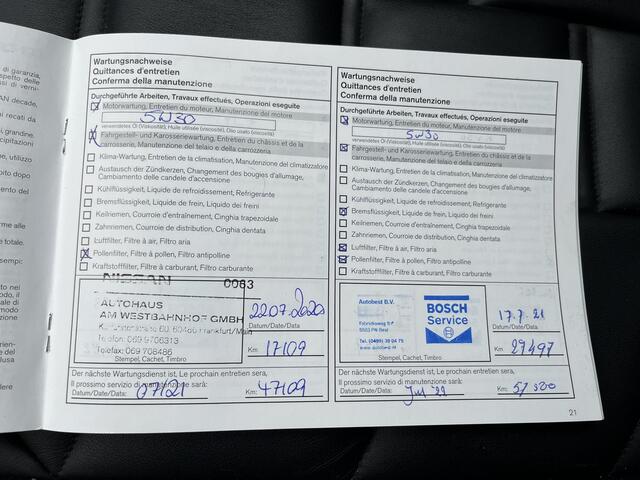 di garanzia,
spetto delle
ssi di verni-
AN decade,
recati da
grandine.
cipitazioni
utilizzo
bito dopo
ento del
rme alle
totale.
sempi:
Wartungsnachweise
Quittances d'entretien
Conferma della manutenzione
Durchgeführte Arbeiten, Travaux effectués, Operazioni eseguite
Motorwartung, Entretien du moteur, Manutenzione del motore
5W30
verwendetes Öl (Viskosität), Huile utilisée (viscosité), Olio usato (viscosità)
Fahrgestell- und Karosseriewartung, Entretien du châssis et de la
carrosserie, Manutenzione del telaio e della carrozzeria
Klima-Wartung, Entretien de la climatisation, Manutenzione del climatizzatore
Austausch der Zündkerzen, Changement des bougies d'allumage,
Cambiamento delle candele d'accensione
Kühlflüssigkeit, Liquide de refroidissement, Refrigerante
Bremsflüssigkeit, Liquide de frein, Liquido dei freini
Keilriemen, Courroie d'entraînement, Cinghia trapezoidale
Zahnriemen, Courroie de distribution, Cinghia dentata
Luftfilter, Filtre à air, Filtro aria
Pollenfilter, Filtre à pollen, Filtro antipolline
Kraftstofffilter, Filtre à carburant, Filtro carburante
NISSAN 0063
AUTOHAUS
AM WESTBAHNHOF GMBH
60, 60486 Frankfurt/Main
Telefon: 069 9706313
Telefax: 069 708486
Stempel, Cachet, Timbro
22.07.2020
Datum/Date/Data:
Km: 17109
Der nächste Wartungsdienst ist, Le prochain entretien sera,
Il prossimo servizio di manutenzione sarà:
Datum/Date/Data: 07/21 Km: 47109
Wartungsnachweise
Quittances d'entretien
Conferma della manutenzione
Durchgeführte Arbeiten, Travaux effectués, Operazioni eseguite
Motorwartung, Entretien du moteur, Manutenzione del motore
5W30
verwendetes Öl (Viskosität), Huile utilisée (viscosité), Olio usato (viscosità)
Fahrgestell- und Karosseriewartung, Entretien du châssis et de la
carrosserie, Manutenzione del telaio e della carrozzeria
Klima-Wartung, Entretien de la climatisation, Manutenzione del climatizzatore
Austausch der Zündkerzen, Changement des bougies d'allumage,
Cambiamento delle candele d'accensione
Kühlflüssigkeit, Liquide de refroidissement, Refrigerante
Bremsflüssigkeit, Liquide de frein, Liquido dei freini
Keilriemen, Courroie d'entraînement, Cinghia trapezoidale
Zahnriemen, Courroie de distribution, Cinghia dentata
Luftfilter, Filtre à air, Filtro aria
Pollenfilter, Filtre à pollen, Filtro antipolline
Kraftstofffilter, Filtre à carburant, Filtro carburante
Autobest B.V.
BOSCH
Service
Stempel, Cachet, Timbro
17.7.21
Datum/Date/Data:
Km: 27497
Der nächste Wartungsdienst ist, Le prochain entretien sera,
Il prossimo servizio di manutenzione sarà:
Datum/Date/Data: Jul '22 Km: 57500
21